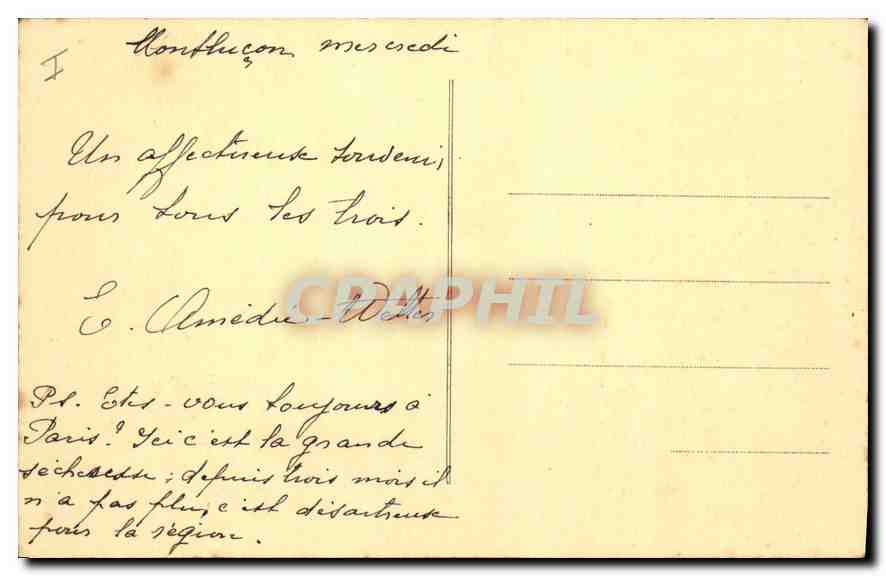 Montluçon mercredi
I
Un affectueux souvenir
pour tous les trois.
E. Amédée-Wetter
CPAPHIL
Ps. Etes-vous toujours à
Paris? Ici c'est la grande
sécheresse; depuis trois mois il
n'a pas plu, c'est désastreux
pour la région.